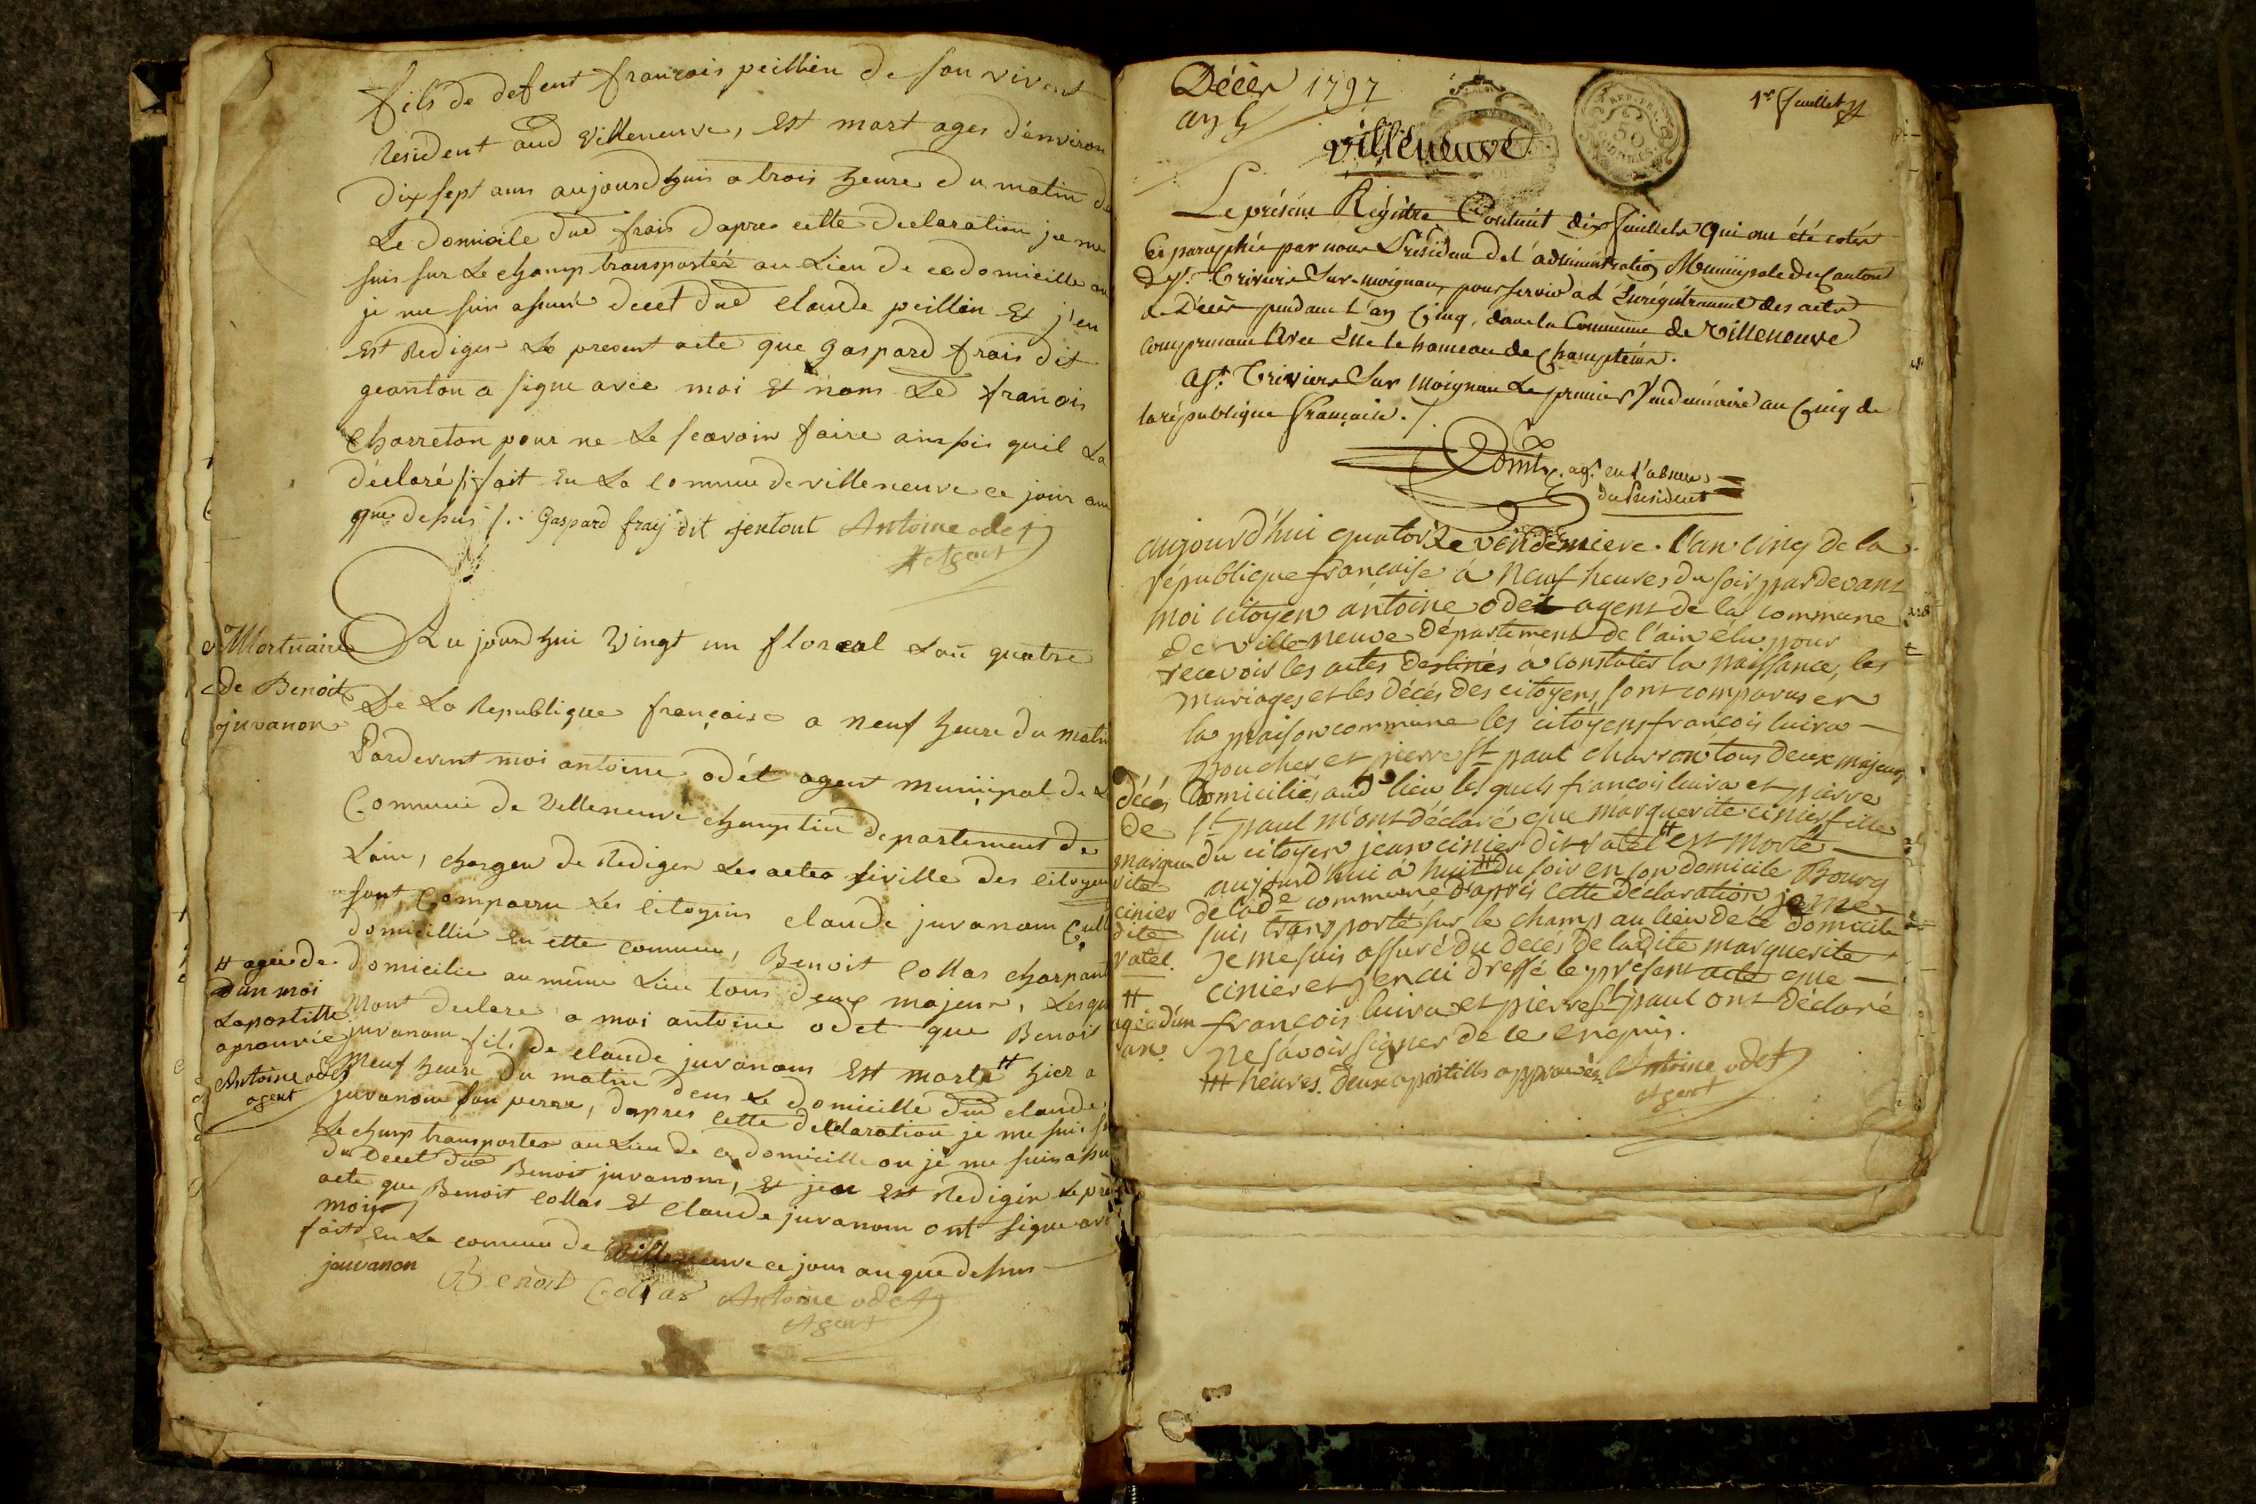 fils de defent francois peillien de son vivent
resident aud villeneuve, est mort ages d'environ
dix sept ans aujourd'huis a trois heure du matin de
Le domicile dud frais dapres cette declaration je me
suis sur Le champ transportéz au Lieu de ce domicille ou
je me suis assuré decet dud claude peillien Et j'en
Est rediger Le present acte que gaspard frais dit
geanton a signe avec moi Et nom Led franois
charreton pour ne Le scavoir faire ainssis quil La
déclaré /: fait En La commune de villeneuve ce jour an
que dessus /. Gaspard fraij dit jentout Antoine odet
Agent
Mortuaire
de Benoit
juvanon
Au jourdhui vingt un floreal Lan quatre
De La Republique française a neuf heure du matin
Pardevent moi antoine odét agent municipal de L
Commune de villeneuve champtein departement de
Lain, charger de Rediger Les actes siville des citoyens
sont Comparru Les citoyens claude juvanom Cult
domicillie En cette commune, Benoit Collas charpant
domicilie au même Lieu tous deux majeur, Lesqu
mont declare a moi antoine odet que Benoit
juvanom fils de claude juvanom Est morte # hier a
neuf heure du matin dens Le domicille dud claude
juvanom son perre, dapres cette declaration je me suis su
Le champ transporter au Lieu de ce domicille ou je me suis assu
du decet dud Benoit juvanom, Et jen Est Rediger Le pre
acte que Benoit Collas Et claude juvanom ont signe ave
moi
fait En La commune de villeneuve ce jour an que dessus
# agée de
dun moi
Lapostille
aprouvée
Antoine odet
agent
jauvanon Benoit Collas Antoine odet
Agent
Décès 1797
an 5
villeneuve
1er feuillet
Le présent Régistre Contient dix feuillets qui ont été cotés
Et paraphés par nous Président de l'administration Municipale du Canton
de St. Triviers Sur-moignans, pour servir à l'Enrégistrement des actes
de Décès pendant L'an Cinq, dans la Commune de villeneuve
comprenant avec Elle le hameau de Champteins.
a St. Triviers Sur moignans Le premier Vendémiaire an Cinq de
la république française. /.
agt. en l'absence
du Président
aujourd'hui quatorze vendémiere. l'an cinq de la
république françoise à neuf heures du soir pardevant
moi citoyen antoine odet agent de la commune
de ville-neuve département de l'ain élu pour
recevoir les actes destinés à constater la naissance, les
mariages et les décès des citoyens, sont comparus en
la maison commune les citoyens françois luira
boucher et pierre St paul charron tous deux majeurs
domiciliés aud lieu lesquels françois luira et pierre
St paul m'ont déclaré que marguerite cinier fille
du citoyen jean cinier dit vatel # est morte
aujourd'hui à huit # du soir en son domicile Bourg
de lade commune d'après cette déclaration je me
suis transporté sur le champ au lieu de ce domicile
Je me suis assuré du décès de ladite marguerite
cinier et j'en ai dressé le présent acte que
françois luira et pierre St paul ont déclaré
ne savoir signer de ce enquis.
## heures. deux apostilles approuvées. Antoine odet
Agent
décès
de
margue
rite
cinier
dite
vatel.
#
agée d'un
an.